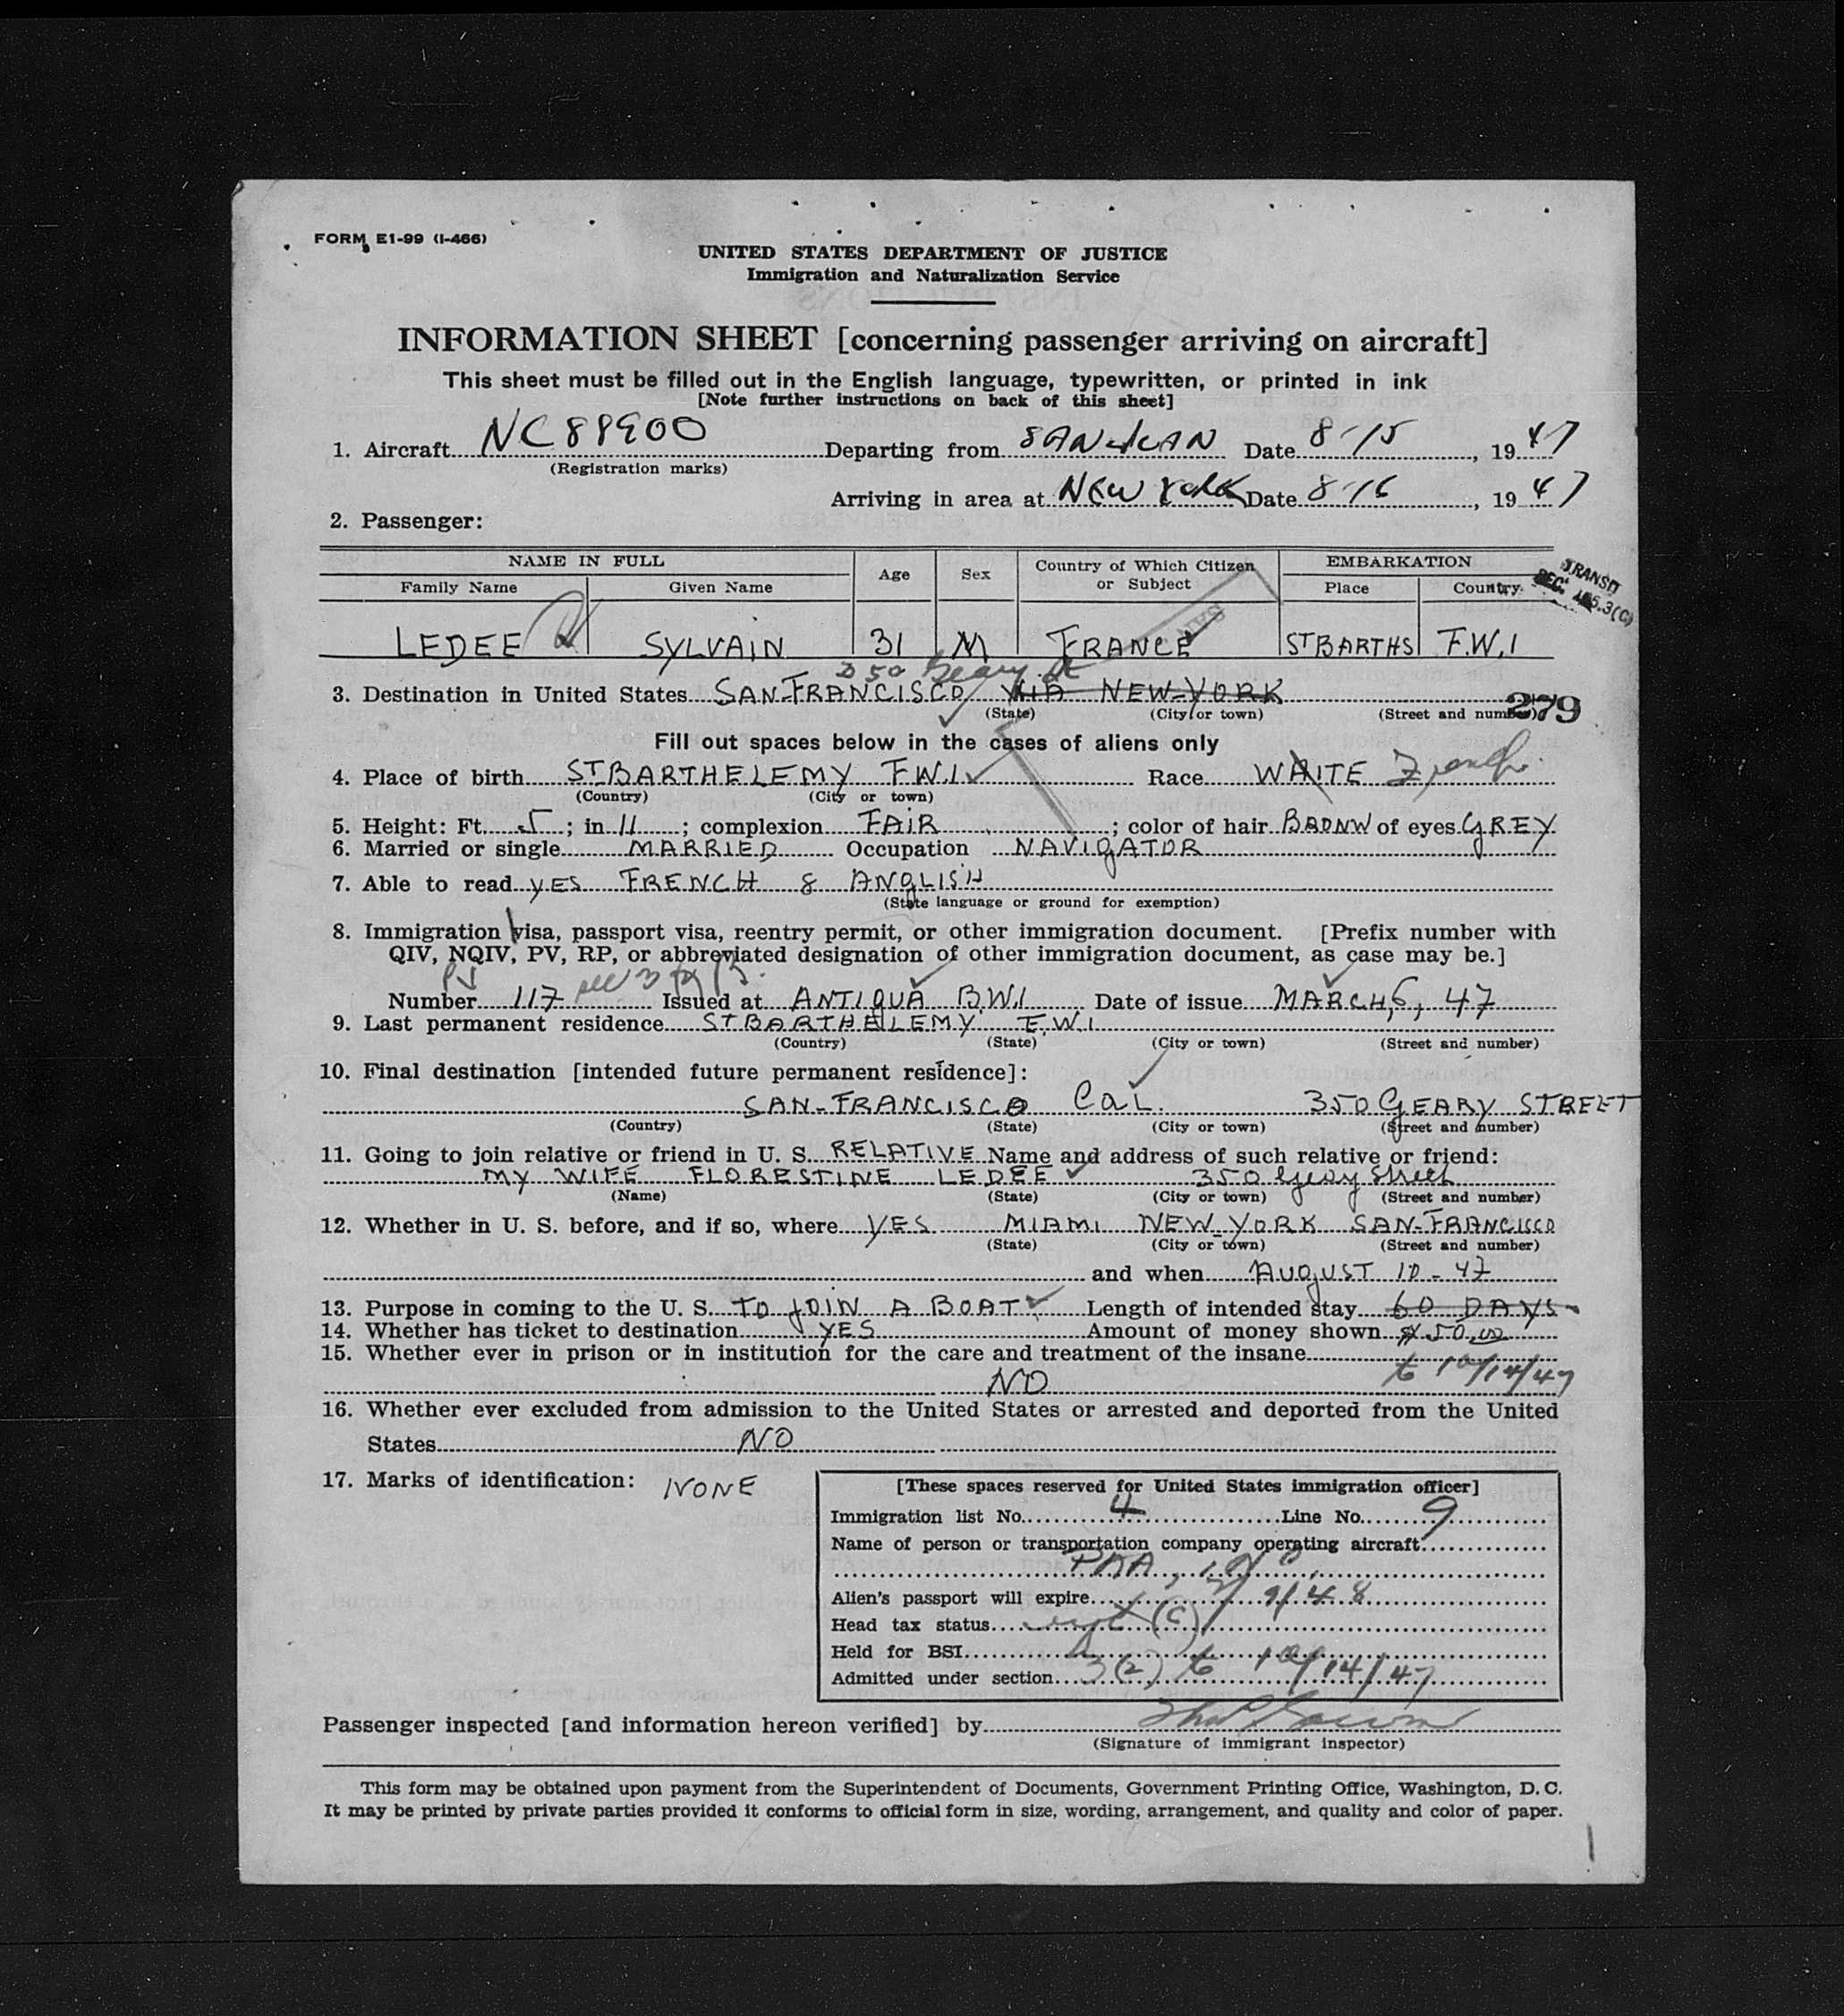 FORM E1-99 (I-466)
UNITED STATES DEPARTMENT OF JUSTICE
Immigration and Naturalization Service
INFORMATION SHEET [concerning passenger arriving on aircraft]
This sheet must be filled out in the English language, typewritten, or printed in ink
[Note further instructions on back of this sheet]
1. Aircraft NC88900 Departing from SAN JUAN Date 8-15, 1947
(Registration marks)
Arriving in area at NEW YORK Date 8-16, 1947
2. Passenger:
NAME IN FULL Age Sex Country of Which Citizen or Subject EMBARKATION
Family Name Given Name Place Country
TRANSIT
SEC. 3(C)
LEDEE SYLVAIN 31 M FRANCE ST BARTHS F.W.I
350 Geary St
3. Destination in United States SAN-FRANCISCO VIA NEW-YORK
(State) (City or town) (Street and number)
279
Fill out spaces below in the cases of aliens only
4. Place of birth ST BARTHELEMY F.W.I Race WHITE French
(Country) (City or town)
5. Height: Ft. 5; in 11; complexion FAIR; color of hair BRONW of eyes GREY
6. Married or single MARRIED Occupation NAVIGATOR
7. Able to read YES FRENCH & ANGLISH
(State language or ground for exemption)
8. Immigration visa, passport visa, reentry permit, or other immigration document. [Prefix number with
QIV, NQIV, PV, RP, or abbreviated designation of other immigration document, as case may be.]
PV
Number 117 Issued at ANTIGUA B.W.I Date of issue MARCH, 6, 47
9. Last permanent residence ST BARTHELEMY F.W.I
(Country) (State) (City or town) (Street and number)
10. Final destination [intended future permanent residence]:
SAN-FRANCISCO CaL. 350 GEARY STREET
(Country) (State) (City or town) (Street and number)
11. Going to join relative or friend in U. S. RELATIVE Name and address of such relative or friend:
MY WIFE FLORESTINE LEDEE 350 Geary Street
(Name) (State) (City or town) (Street and number)
12. Whether in U. S. before, and if so, where YES MIAMI NEW-YORK SAN-FRANCISCO
(State) (City or town) (Street and number)
and when AUGUST 10-47
13. Purpose in coming to the U. S. TO JOIN A BOAT Length of intended stay 60 DAYS
14. Whether has ticket to destination YES Amount of money shown $50.00
15. Whether ever in prison or in institution for the care and treatment of the insane
NO to 10/14/47
16. Whether ever excluded from admission to the United States or arrested and deported from the United
States NO
17. Marks of identification: NONE
[These spaces reserved for United States immigration officer]
Immigration list No. 4 Line No. 9
Name of person or transportation company operating aircraft
PAA, Inc.
Alien's passport will expire 9/48
Head tax status (C)
Held for BSI
Admitted under section 3(2) to 10/14/47
Passenger inspected [and information hereon verified] by
(Signature of immigrant inspector)
This form may be obtained upon payment from the Superintendent of Documents, Government Printing Office, Washington, D. C.
It may be printed by private parties provided it conforms to official form in size, wording, arrangement, and quality and color of paper.